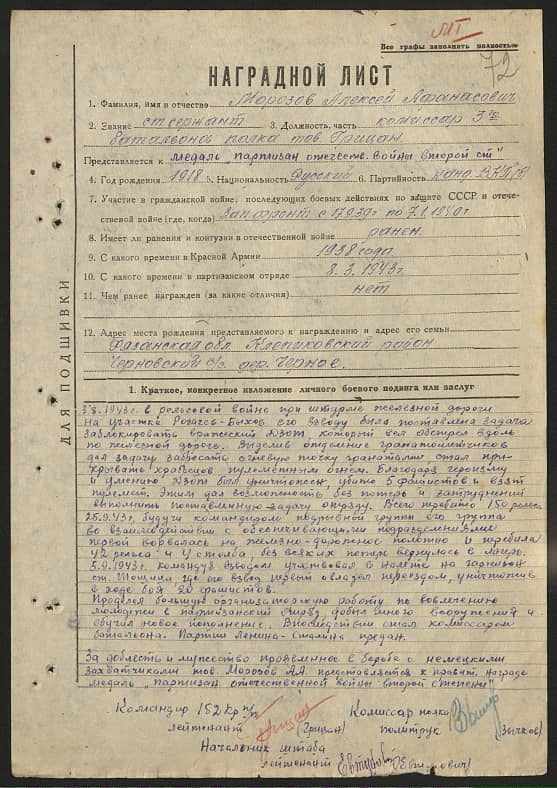 Все графы заполнять полностью
72
НАГРАДНОЙ ЛИСТ
1. Фамилия, имя и отчество Морозов Алексей Афанасович
2. Звание ст сержант 3. Должность, часть комиссар 3го
баталиона полка тов. Грицан
Представляется к медаль "партизан отечеств. войны второй ст"
4. Год рождения 1918 5. Национальность Русский 6. Партийность Канд. ВКП(б)
7. Участие в гражданской войне, последующих боевых действиях по защите СССР и отече-
ственной войне (где, когда) Зап фронт с по
8. Имеет ли ранения и контузии в отечественной войне ранен
9. С какого времени в Красной Армии 1938 года
10. С какого времени в партизанском отряде 8.3.1943г
11. Чем ранее награжден (за какие отличия) нет
12. Адрес места рождения представляемого к награждению и адрес его семьи
Рязанская обл. Клепиковский район
Черновский с/з дер. Черное.
ДЛЯ ПОДШИВКИ
1. Краткое, конкретное изложение личного боевого подвига или заслуг
3.8.1943г. в релсовой войне при штурме железной дороги
на участке Рогачев-Быхов его взводу была поставлена задача
заблокировать вражеский ДЗОТ, который вел обстрел вдоль
по железной дороге. Выделив отделение гранатометчиков
дал задачу забросать огневую точку гранатами, стал при-
крывать храбрецов пулеметным огнем. Благодаря героизму
и умению ДЗОТ был уничтожен, убито 5 фашистов и взят
пулемет. Этим дал возможность без потерь и затруднений
выполнить поставленную задачу отряду. Всего перебито 150 рельс
25.9.43г. будучи командиром подрывной группы его группа
во взаимодействии с обеспечивающими подразделениями
первой ворвалась на железно-дорожное полотно и перебила
42 рельса и 4 столба без всяких потерь вернулась в лагерь.
5.9.1943г. командуя взводом участвовал в налете на гарнизон
ст. Тощица где его взвод первый овладел переездом, уничтожив
в ходе боя 20 фашистов.
Проделал большую организаторскую работу по вовлечению
молодежи в партизанский отряд, добыл много вооружения и
обучил новое пополнение. Впоследствии стал комиссаром
батальона. Партии Ленина-Сталина предан.
За доблесть и мужество проявленное в борьбе с немецкими
захватчиками тов. Морозов А.А. представляется к правит. награде
медаль "партизан отечественной войны второй степени"
Командир 152 Кр п/п Комиссар полка
лейтенант (Грицан) политрук (Зычков)
Начальник штаба
лейтенант (Евтихович)